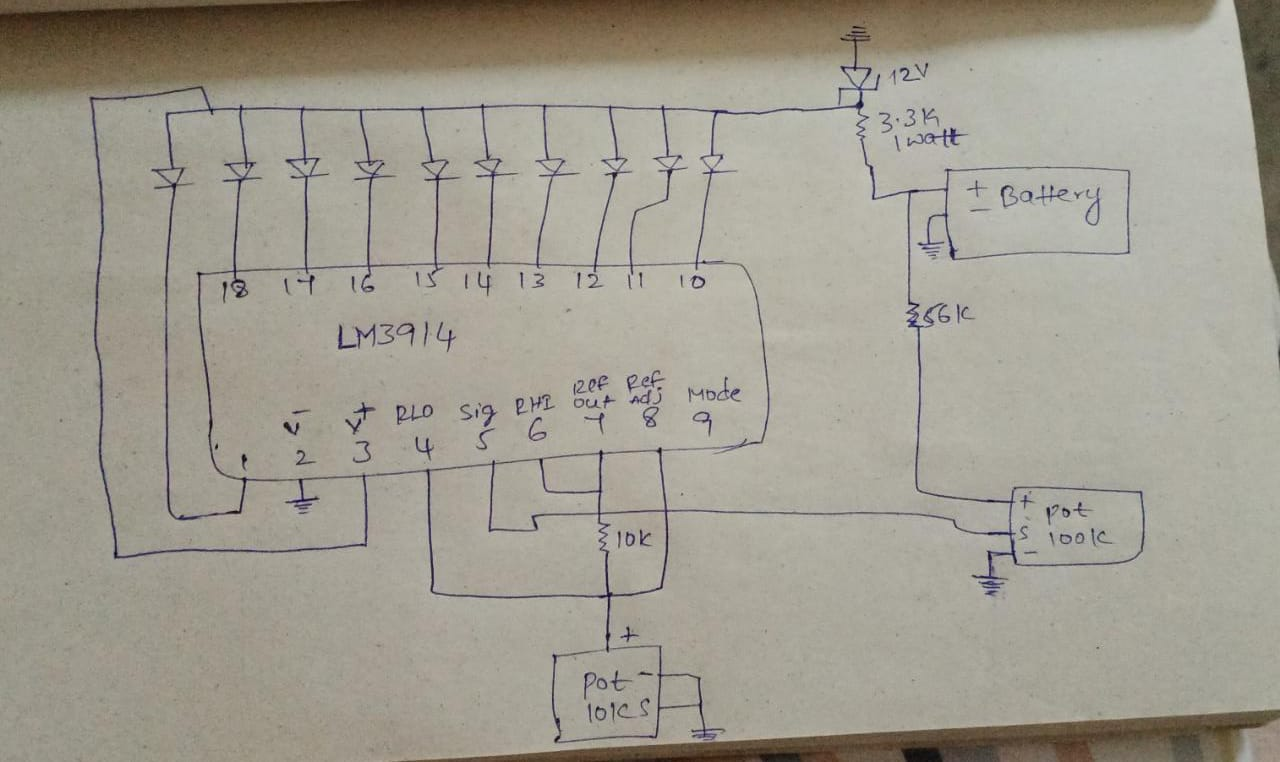 12V
3.3K
1 watt
+ Battery
-
18 17 16 15 14 13 12 11 10
LM3914
56K
V- V+ RLO Sig RHI Ref Out Ref Adj Mode
1 2 3 4 5 6 7 8 9
+ Pot
S 100K
-
10K
+
Pot -
10K S